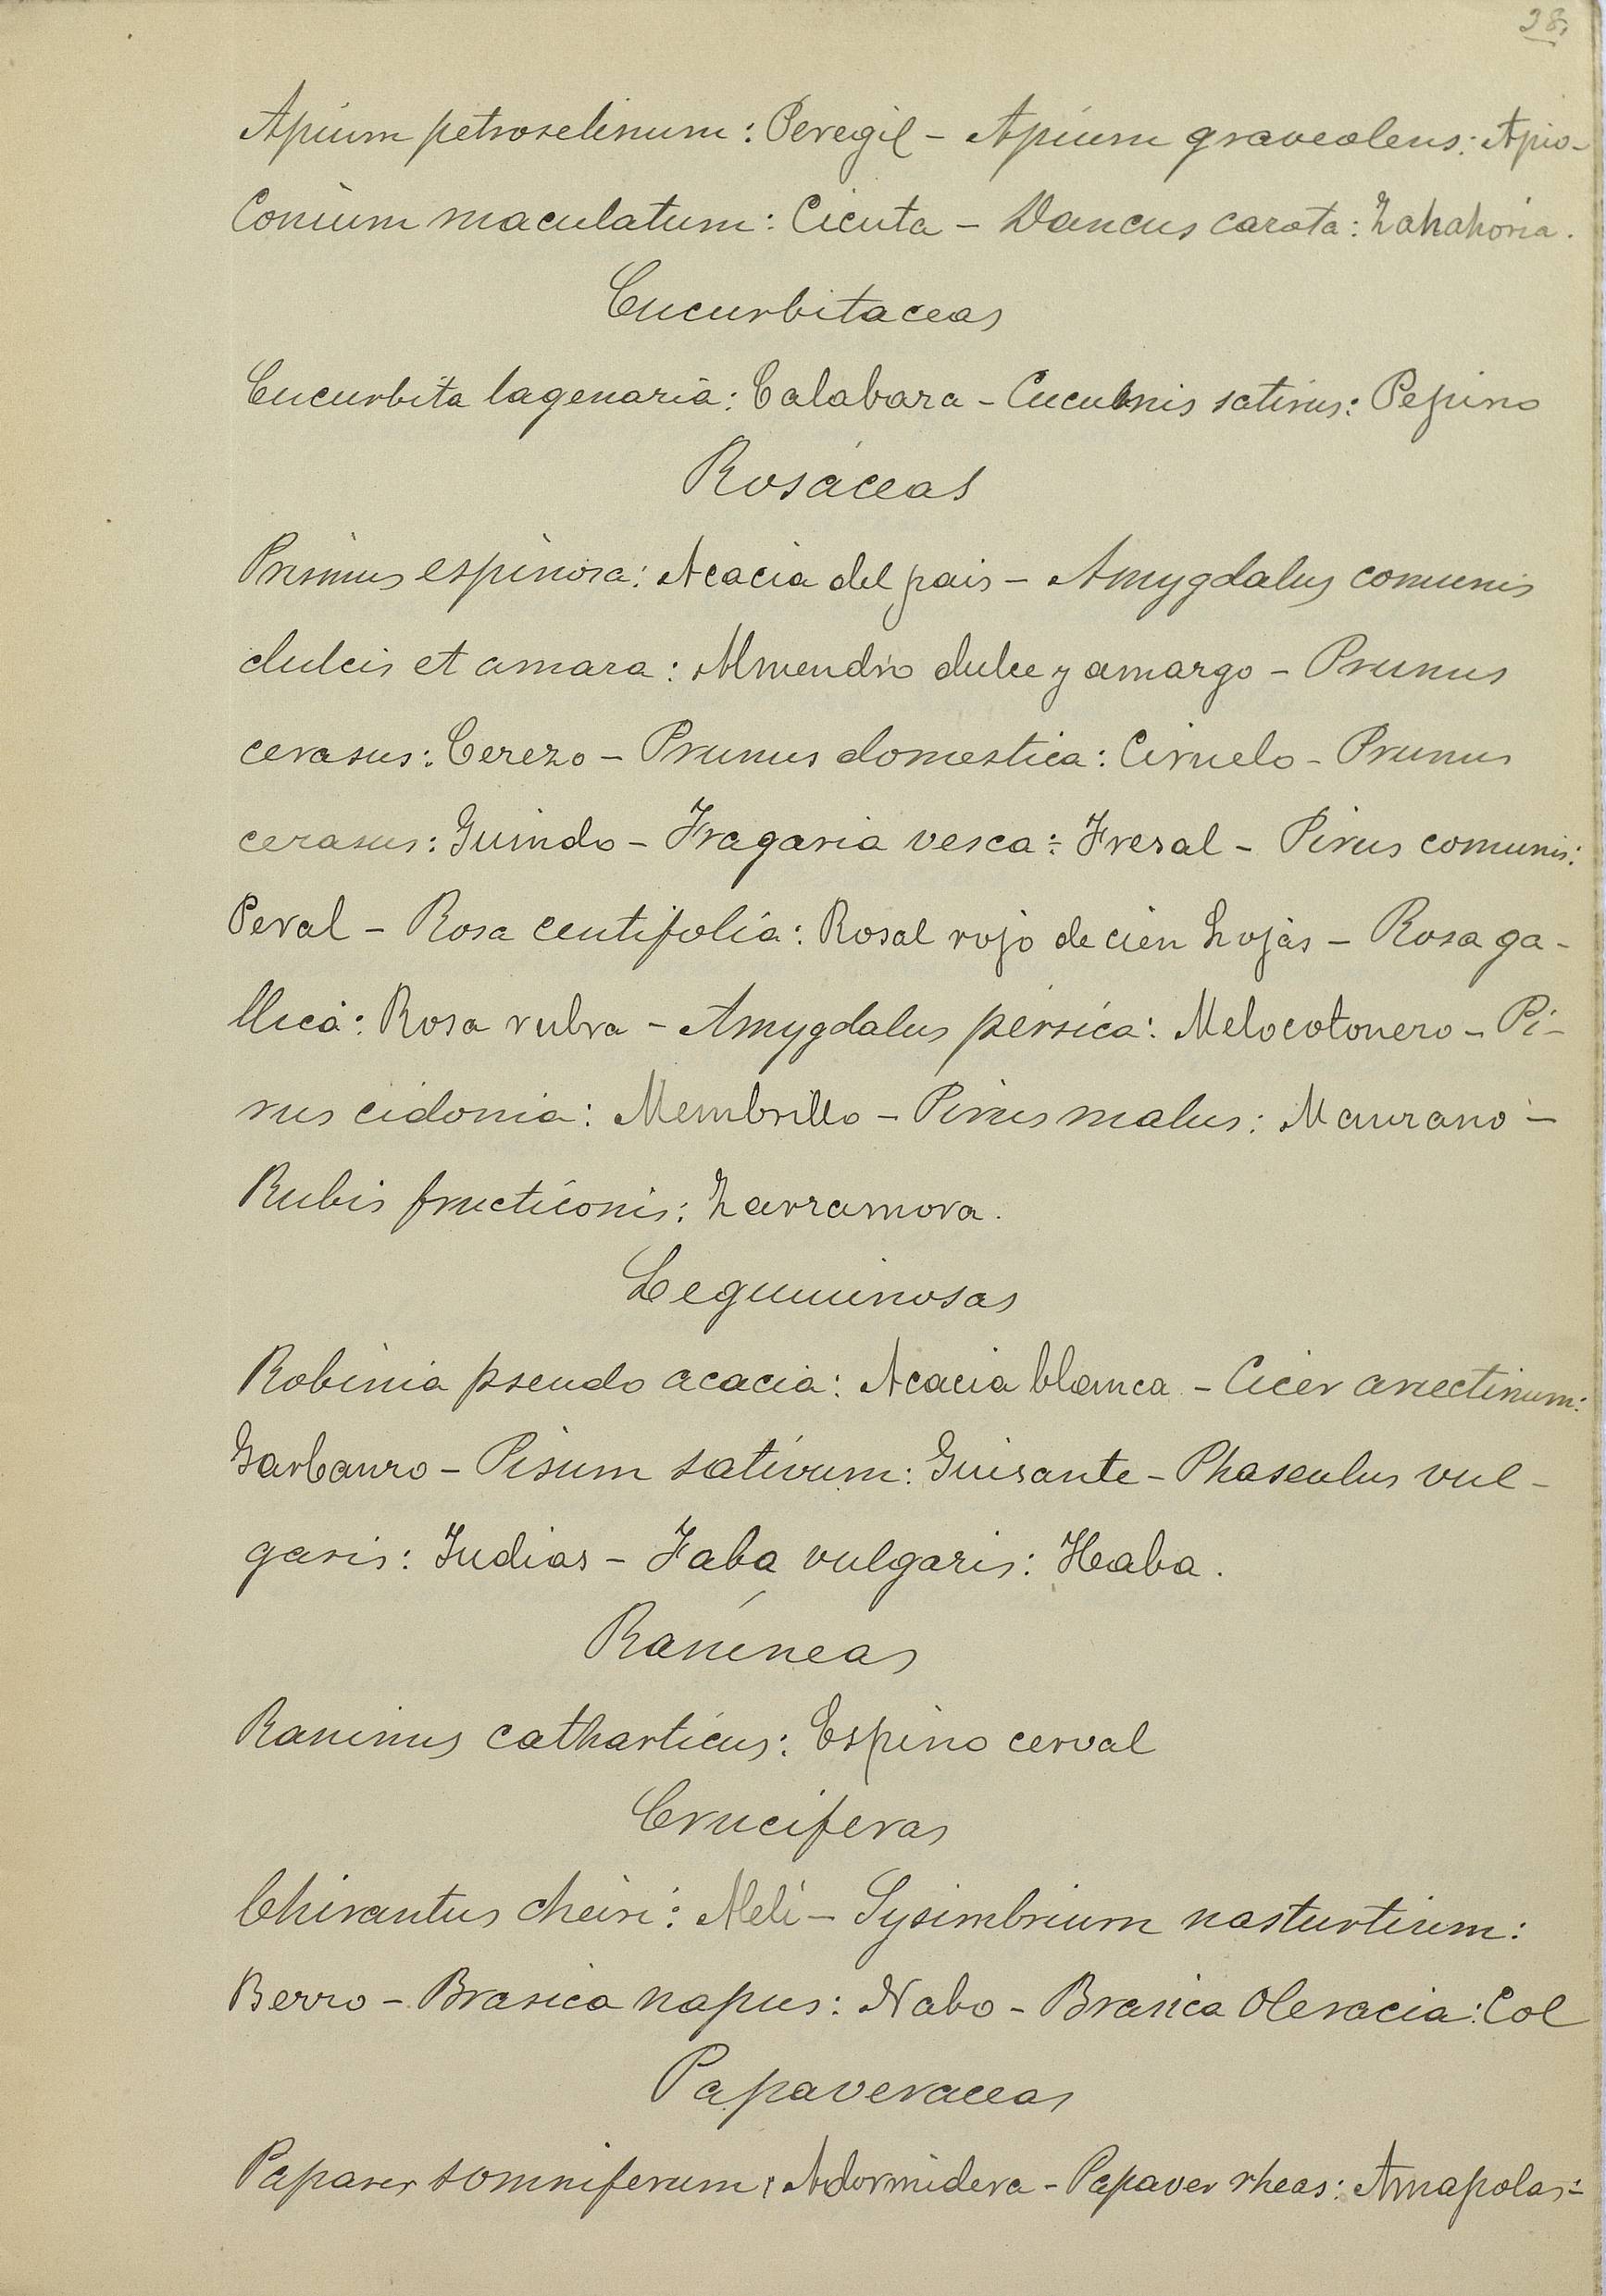 28,
Apium petroselinum: Peregil - Apium graveolens: Apio-
Conium maculatum: Cicuta - Dancus carota: Zahahoria.
Cucurbitaceas
Cucurbita lagenaria: Calabaza - Cucumis sativus: Pepino
Rosáceas
Prunus espinosa: Acacia del pais - Amygdalus comunis
dulcis et amara: Almendro dulce y amargo - Prunus
cerasus: Cerezo - Prunus domestica: Ciruelo - Prunus
cerasus: Guindo - Fragaria vesca: Fresal - Pirus comunis:
Peral - Rosa centifolia: Rosal rojo de cien hojas - Rosa ga-
llica: Rosa rubra - Amygdalus pérsica: Melocotonero - Pi-
rus cidonia: Membrillo - Pirus malus: Manzano -
Rubis fructiconis: Zarzamora.
Leguminosas
Robinia pseudo acacia: Acacia blanca - Cicer ariectinum:
Garbanzo - Pisum sativum: Guisante - Phaseolus vul-
garis: Judias - Faba vulgaris: Haba.
Ramíneas
Ramnus catharticus: Espino cerval
Cruciferas
Chirantus cheiri: Alelí - Sysimbrium nasturtium:
Berro - Brasica napus: Nabo - Brasica Oleracia: Col
Papaveraceas
Papaver somniferum: Adormidera - Papaver rheas: Amapolas-